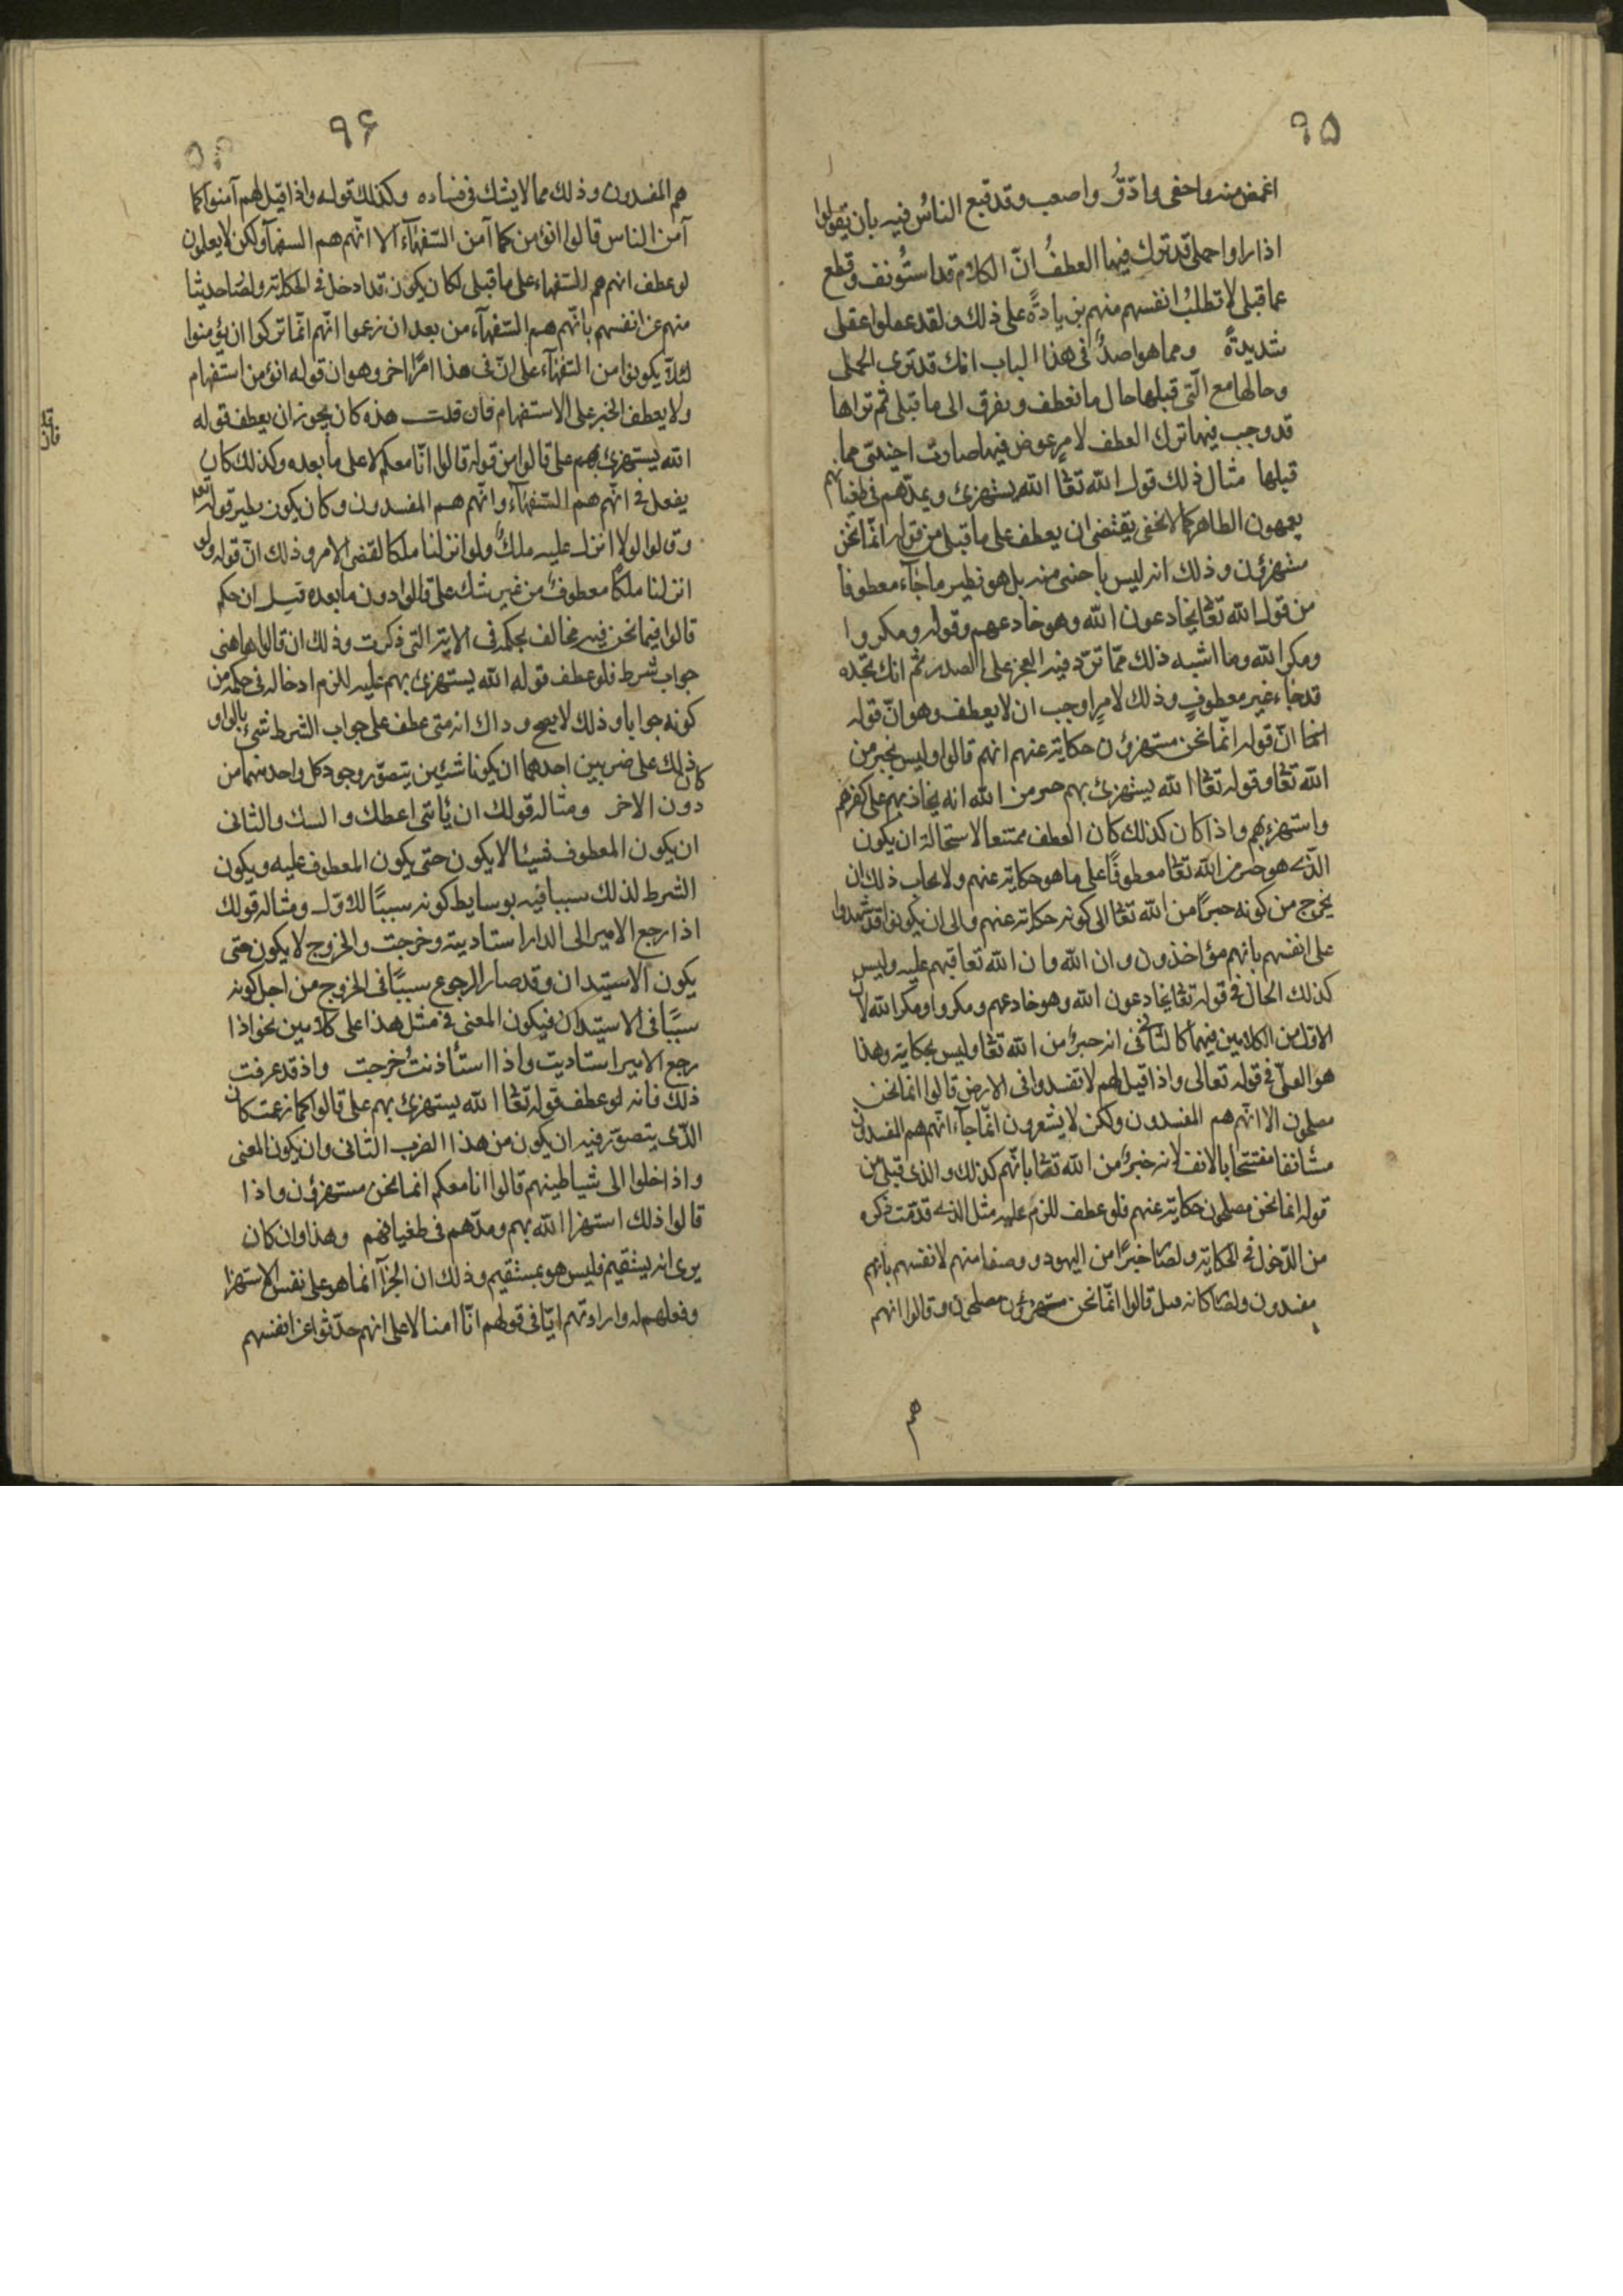 ٩٥
اغمض منه واخفى وادَقُّ واصعب وقد قنع الناسُ فيه بان يقولوا
اذا راوا جملة قد ترك فيها العطفُ انّ الكلام قد استُونف وقطع
عما قبلى لا تطلبُ انفسهم منهم بزيادةً على ذلك ولقد غفلوا غفلى
شديدةً ومما هو اصلٌ فى هذا الباب انك قد ترى الجملى
وحالها مع الّتى قبلها حال ما تعطف ويقرن الى ما قبلى ثم تراها
قد وجب فيها ترك العطف لامرٍ عرض فيها صارت اجنبيّة مما
قبلها مثال ذلك قوله الله تعٰا الله يستهزئ ويمدّهم فى طغيانهم
يعمهون الظاهر كما لا نخفى يقتضى ان يعطف على ما قبلى من قوله انّما نحن
مستهزؤن وذلك انه ليس باجنبى منه بل هو نظير ما جاء معطوفا
من قوله الله تعٰا يخادعون الله وهو خادعهم وقوله ومكروا
ومكر الله وما اشبه ذلك ممّا تردّ فيه العجز على الصدر ثم انك تجده
قد جاء غير معطوفٍ وذلك لامرٍ اوجب ان لا يعطف وهو انّ قوله
انما انّ قوله انّما نحن مستهزؤن حكاية عنهم انهم قالوا وليس بخبر من
الله تعٰا وقوله تعٰا الله يستهزئ بهم خبر من الله انه يجاذبهم على كفرهم
واستهزءبهم واذا كان كذلك كان العطف ممتنعا لاستحالة ان يكون
الّذى هو خبر من الله تعٰا معطوفًا على ما هو حكاية عنهم ولايجاب ذلك ان
يخرج من كونه خبرًا من الله تعٰا الى كونه حكاية عنهم والى ان يكونوا قد شهدوا
على انفسهم بانهم مؤاخذون وان الله وان الله تعا قبهم عليه وليس
كذلك الحال فى قوله تعٰا يخادعون الله وهو خادعهم ومكروا ومكر الله لان
الاوّل من الكلامين فيهما كالثانى فى انه خبرٌ من الله تعٰا وليس بحكاية وهذا
هو العلّة فى قوله تعالى واذا قيل لهم لا تفسدوا فى الارض قالوا انما نحن
مصلحون الا انّهم هم المفسدون ولكن لا يشعرون انّما جآء انّهم هم المفسدون
مستأنفا مفتتحا بالانف لانه خبرٌ من الله تعٰا بانّهم كذلك والذى قبلى من
قوله انما نحن مصلحون حكاية عنهم فلو عطف للزم عليه مثل الّذى قدّمت ذكره
من الدّخول فى الحكاية ولصٰا خبرًا من اليهود ووصفا منهم لانفسهم بانهم
مفسدون ولصٰا كانه قيل قالوا انّما نحن مستهزؤن مصلحون وقالوا انهم
هم
٩۶
هم المفسدون وذلك مما لا يشك فى فساده وكذلك قوله واذا قيل لهم آمنوا كما
آمن الناس قالوا انؤمن كما آمن السّفهآء الا انّهم هم السفهآء ولكن لا يعلمون
لو عطف انهم هم السّفهاء على ما قبلى لكان يكون قد ادخل فى الحكاية ولصٰا حديثا
منهم عن انفسهم بانّهم هم السّفهآء من بعد ان زعموا انّهم انّما تركوا ان يؤمنوا
لئلا يكونوا من السّفهآء على انّ فى هذا امرًا اخر وهو ان قوله انؤمن استفهام
ولا يعطف الخبر على الاستفهام فان قلت هذه كان يجوز ان يعطف قوله
الله يستهزئ بهم على قالوا من قوله قالوا انّا معكم لا على ما بعده وكذلك كان
يفعل فى انّهم هم السّفهآء وانّهم هم المفسدون وكان يكون نظير قوله تعٰا
وقالوا لولا انزل عليه ملكٌ ولو انزلنا ملكا لقضى الامر وذلك انّ قوله ولو
انزلنا ملكًا معطوفٌ من غير شك على قالوا دون ما بعده قيل ان حكم
قالوا فيما نحن فيه مخالف بحكمه فى الاية التى ذكرت وذلك ان قالوا هاهنى
جواب شرط فلو عطف قوله الله يستهزئ بهم عليه للزم ادخاله فى حكمه من
كونه جوابا وذلك لا يصح وداك انه متى عطف على جواب الشرط شئ بالواو
كان ذلك على ضربين احدهما ان يكونا شيئين يتصوّر وجود كل واحد منهما من
دون الاخر ومثاله قولك ان يأتنى اعطك والسك والثانى
ان يكون المعطوف فسيئا لا يكون حتى يكون المعطوف عليه ويكون
الشرط لذلك سببا فيه بوسايط كونه سببًا للاوّل ومثاله قولك
اذا رجع الامير الى الدار استاديته وخرجت والخروج لا يكون حتى
يكون الاستيدان وقد صار الرجوع سببًا فى الخروج من اجل كونه
سببًا فى الاستيدان فيكون المعنى فى مثل هذا على كلامين نحو اذا
رجع الامير استاديت واذا استأذنتُ خرجت واذ قد عرفت
ذلك فانه لو عطف قوله تعٰا الله يستهزئ بهم على قالوا كما زعمت كان
الّذى يتصوّر فيه ان يكون من هذا الضرب الثانى وان يكون المعنى
واذا خلوا الى شياطينهم قالوا انا معكم انما نحن مستهزؤن واذا
قالوا ذلك استهزا الله بهم ومدّهم فى طغيانهم وهذا وان كان
يرى انه يستقيم فليس هو بمستقيم وذلك ان الجزآ انما هو على نفس الاستهزا
وفعلهم له وارادتهم ايّا فى قولهم انّا امنا لا على انهم حدّثوا عن انفسهم